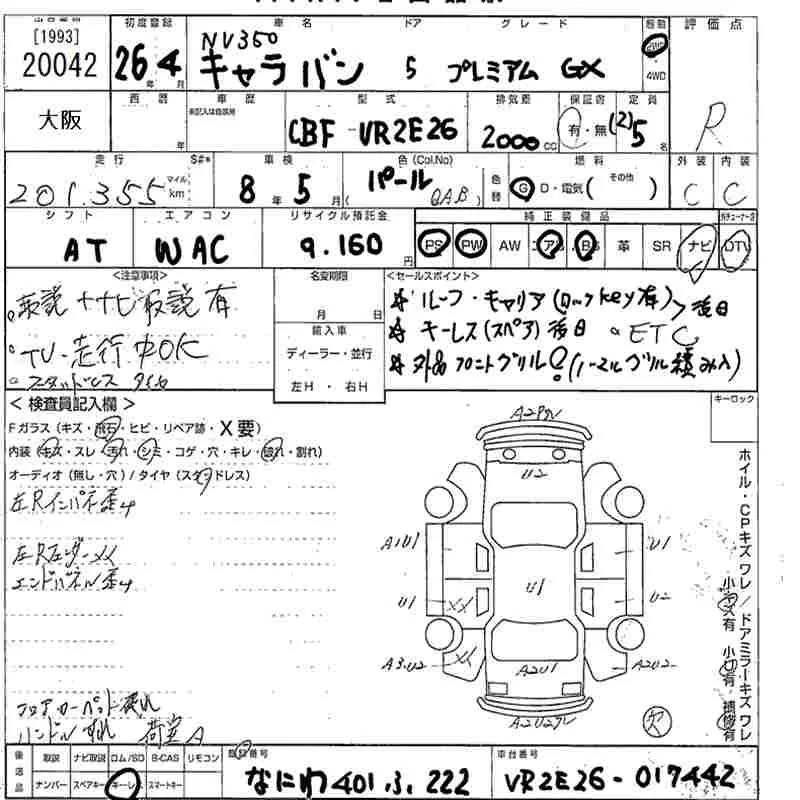 [1993]
20042
初度登録
26年 4月
車名
NV350
キャラバン
ドア
5
グレード
プレミアム GX
駆動
2WD
4WD
評価点
R
大阪
西暦
年
車歴
型式
CBF-VR2E26
排気量
2000cc
保証書
有・無
定員
(2)5名
走行
201.355
マイル
km
S#*
車検
8年 5月
色(Col.No)
パール
(QAB)
色替
燃料
G D・電気( その他 )
外装
C
内装
C
シフト
AT
エアコン
WAC
リサイクル預託金
9.160円
純正装備品
PS PW AW エアB ABS 革 SR ナビ DTV
<注意事項>
取説 ナビ取説 有
TV-走行中OK
スタッドレス タイヤ
名変期限
月 日
輸入車
ディーラー・並行
左H・右H
<セールスポイント>
ルーフ・キャリア(ロック key 有)>後日
キーレス(スペア)後日 ETC
外品フロントグリル(ノーマルグリル積み入)
<検査員記入欄>
Fガラス(キズ・飛石・ヒビ・リペア跡・X要)
内装(キズ・スレ・汚れ・シミ・コゲ・穴・キレ・破れ・割れ)
オーディオ(無し・穴)/タイヤ(スタッドレス)
左Rインパネ歪み
左Rフェンダーxx
エンドパネル歪み
フロアカーペット破れ
ハンドルすれ 荷室A
キーロック
U2
A1U1
U1
U1
U1
XX
U2
A3U2
XX
A2U1
A2U2
欠
ホイル・CPキズ ワレ/ドアミラーキズ ワレ
小キズ有 小凹有・補修有
後送品
取説 ナビ取説 ロム/SD B-CAS リモコン
ナンバー スペアキー キーレス スマートキー
登録番号
なにわ 401 さ 222
車台番号
VR2E26-017442